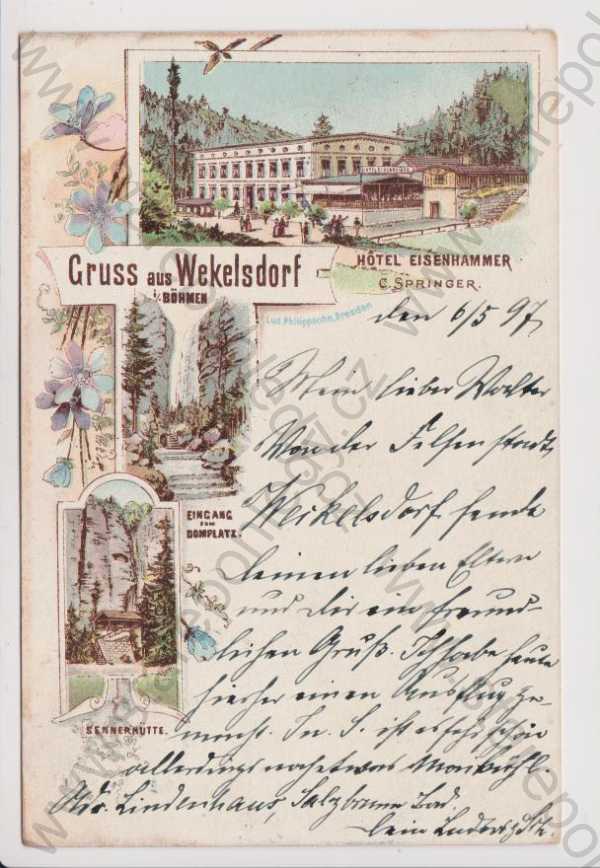 HÔTEL EISENHAMMER
C. SPRINGER.
Gruss aus Wekelsdorf
i/. BÖHMEN
Lud. Philippsohn, Dresden
EINGANG
ZUM
DOMPLATZ.
SENNERHÜTTE.
den 6/5 97
Mein lieber Walter
Von der Felsenstadt
Weckelsdorf sende
deinen lieben Eltern
und dir ein freund-
lichen Gruß. Ich habe heute
hierher einen Ausflug ge-
macht. In S. ist es sehr schön
allerdings noch etwas
Adr. Lindenhaus, Salzbrunn Bad.
dein